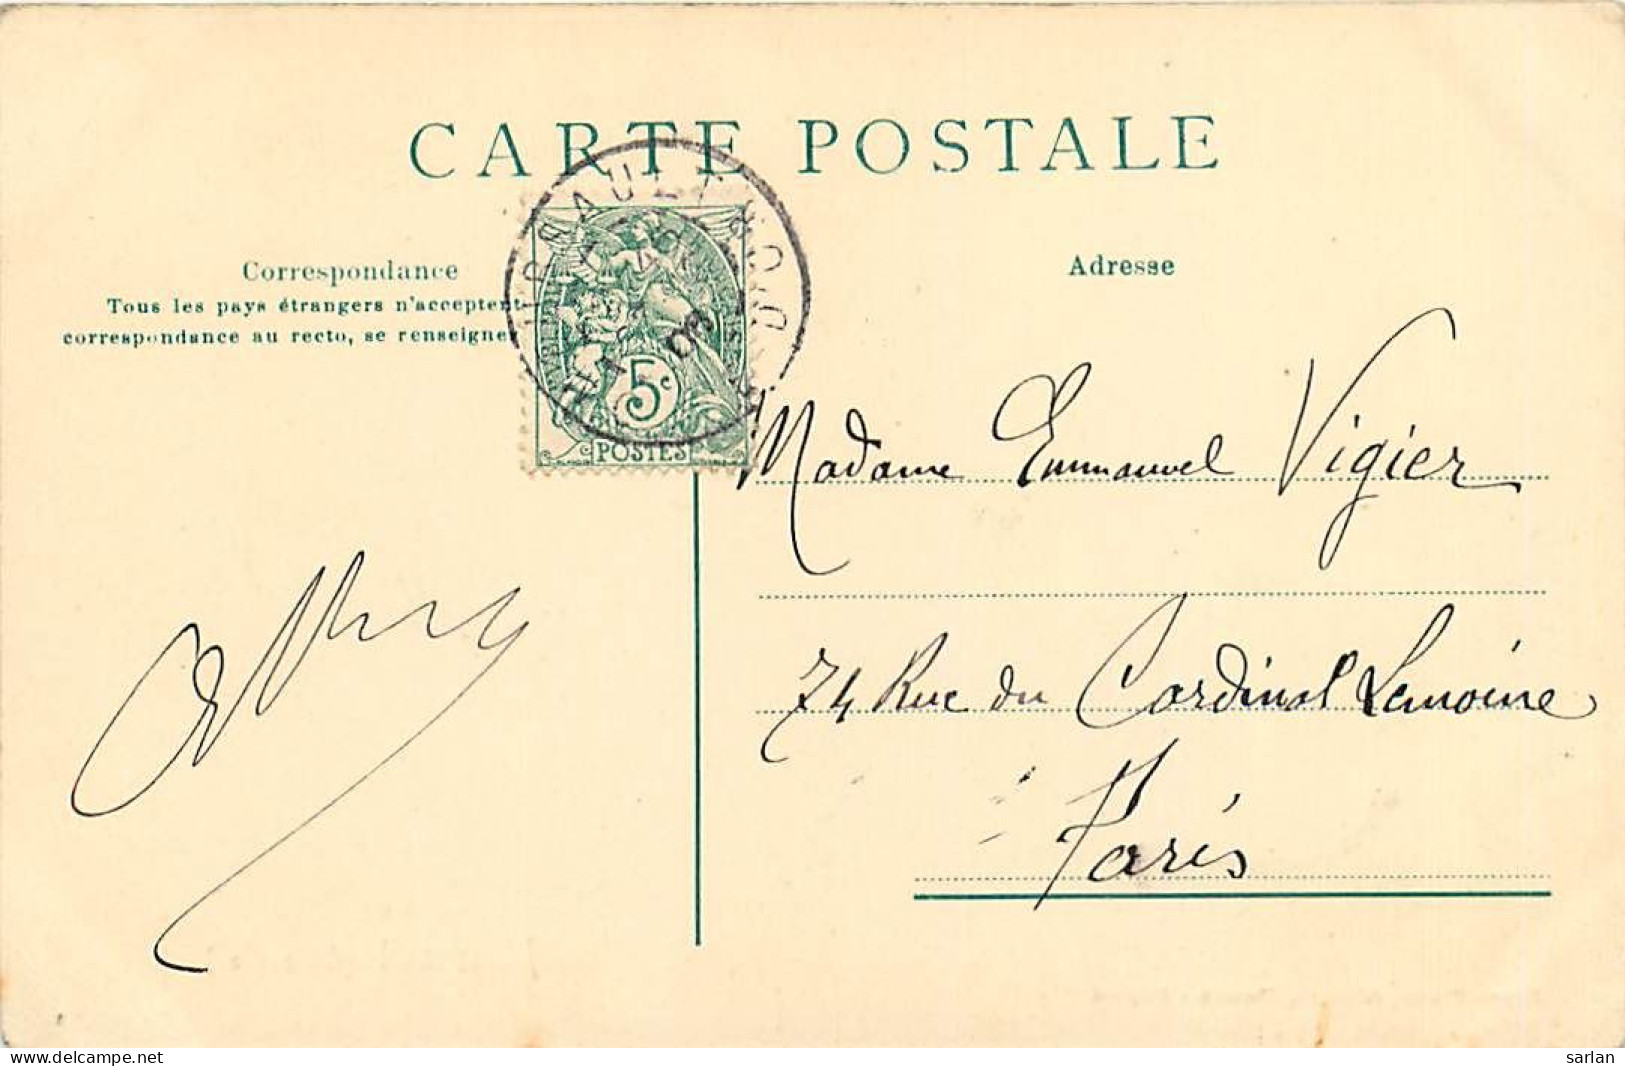 CARTE POSTALE
Correspondance
Tous les pays étrangers n'acceptent
correspondance au recto, se renseigne
Adresse
5c
POSTES
09
Madame Emmanuel Vigier
74 Rue du Cardinal Lemoine
Paris
www.delcampe.net
sarlan